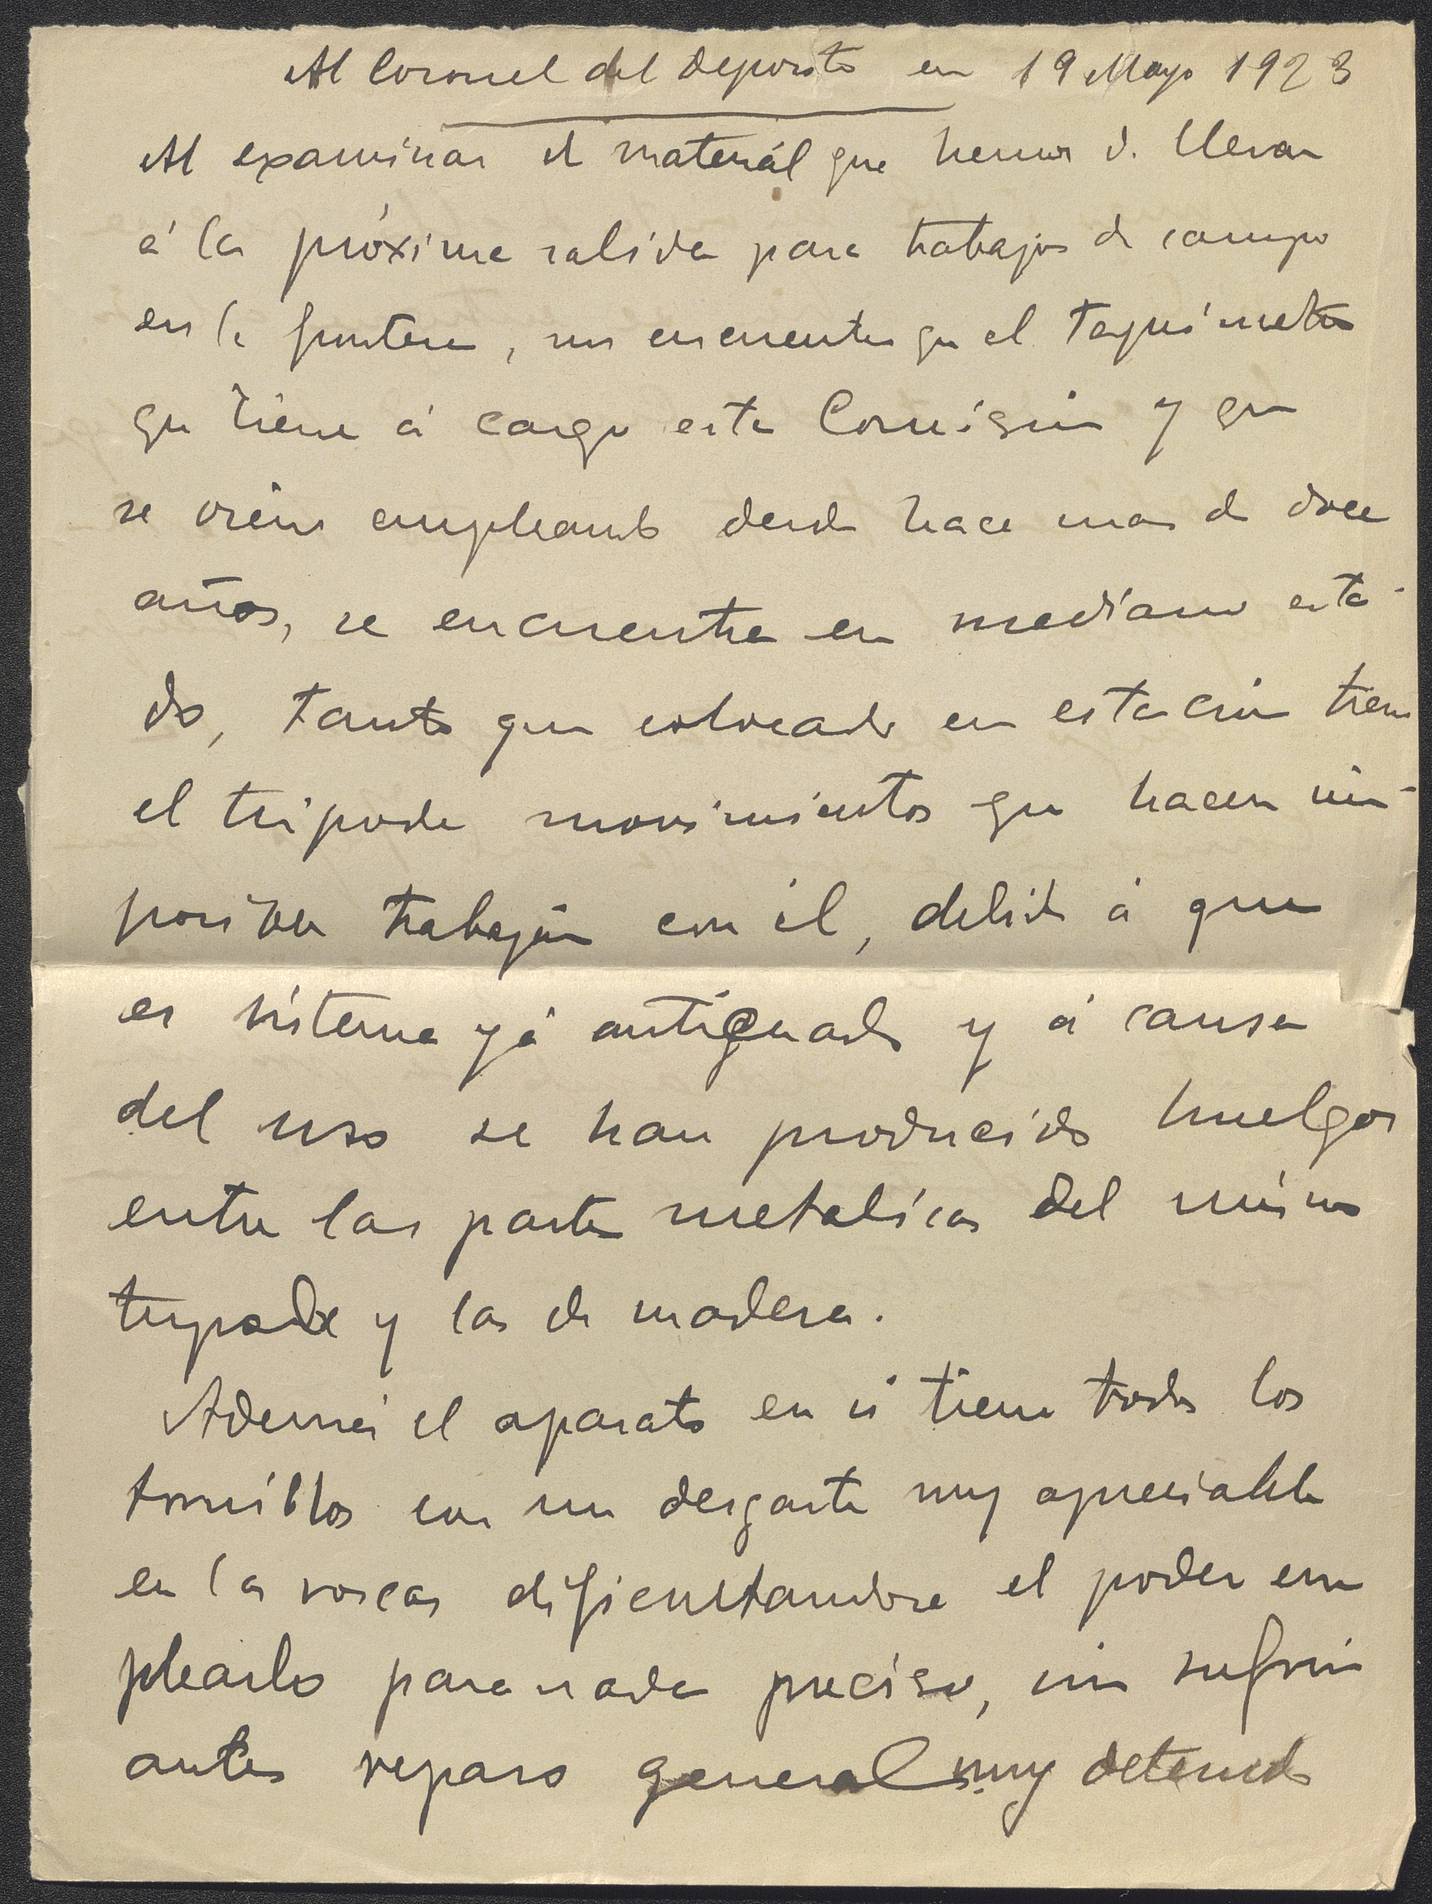 Al Coronel del Deposito en 19 Mayo 1923
Al examinar el material que hemos d. llevar
á la próxima salida para trabajos de campo
en la frontera, nos encuentra que el Taquimetro
que tiene á cargo esta Comisión y que
se viene empleando desde hace mas de doce
años, se encuentra en mediano esta-
do, tanto que colocado en estación tiene
el tripode movimientos que hacen im-
posible trabajar con él, debido á que
es sistema yá antiguado y á causa
del uso se han producido huelgos
entre las partes metalicas del mismo
tripode y las de madera.
Además el aparato en si tiene todos los
tornillos con un desgaste muy apreciable
en las roscas dificultandose el poder em
plearlo para nada preciso, sin sufrir
antes reparo general muy detenido